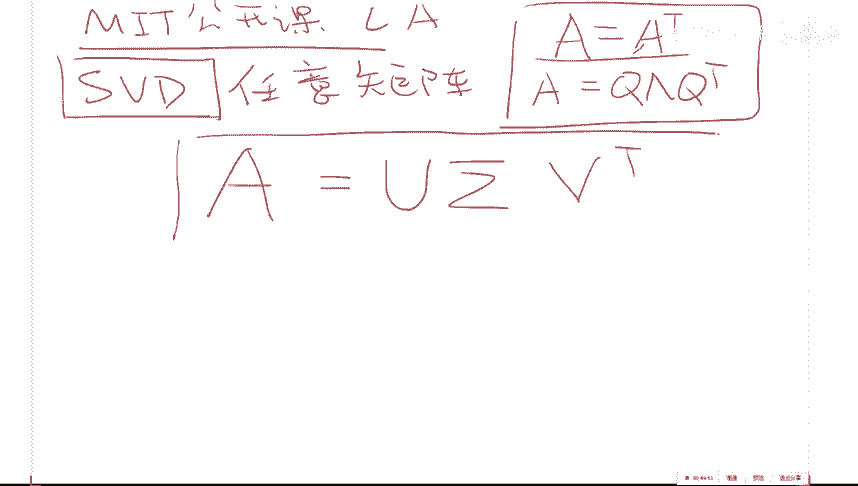 MIT公开课 LA
SVD 任意矩阵
A = Aᵀ
A = QΛQᵀ
A = U Σ Vᵀ